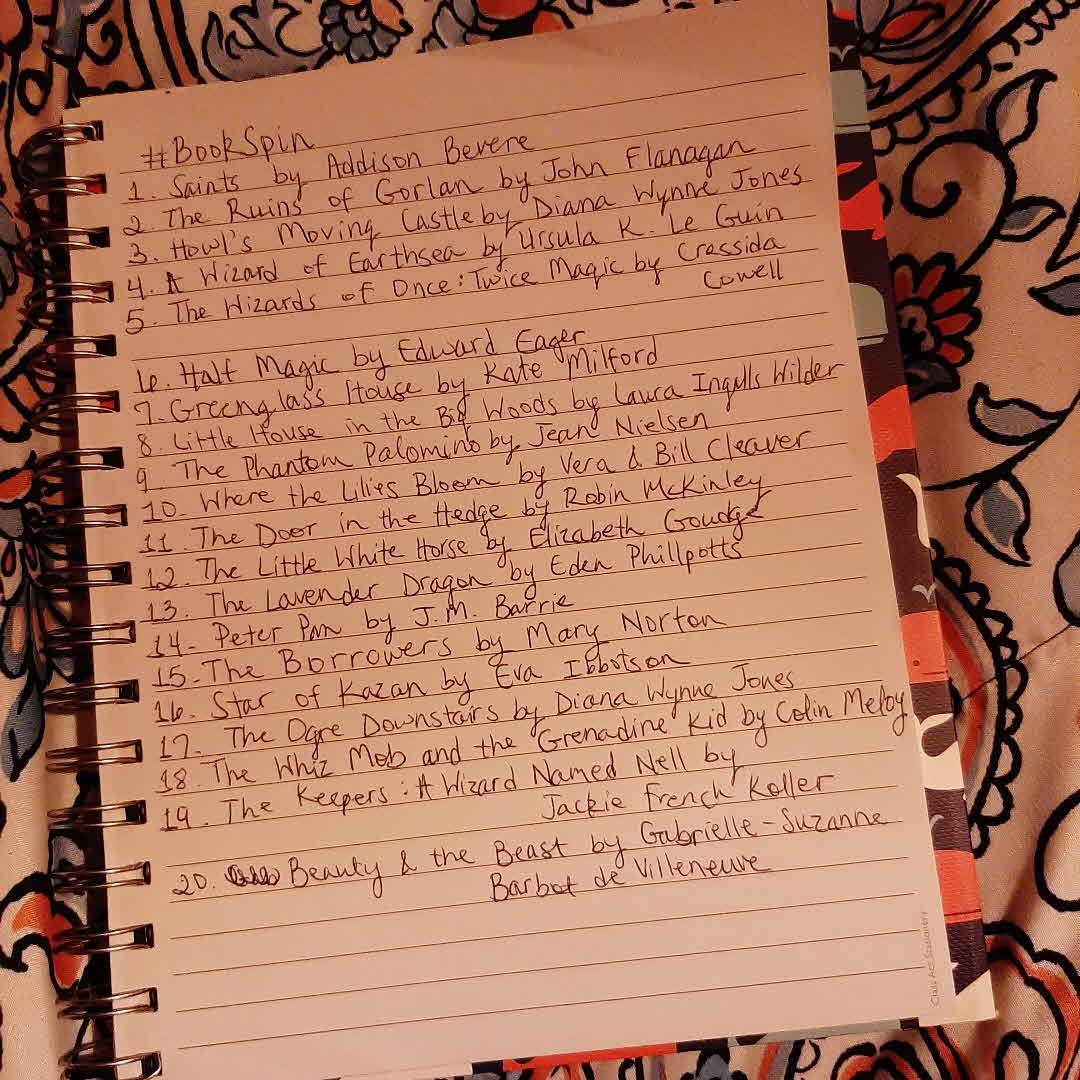 #BookSpin
1. Saints by Addison Bevere
2. The Ruins of Gorlan by John Flanagan
3. Howl's Moving Castle by Diana Wynne Jones
4. A Wizard of Earthsea by Ursula K. Le Guin
5. The Wizards of Once: Twice Magic by Cressida
Cowell
6. Half Magic by Edward Eager
7. Greenglass House by Kate Milford
8. Little House in the Big Woods by Laura Ingalls Wilder
9 The Phantom Palomino by Jean Nielsen
10. Where the Lilies Bloom by Vera & Bill Cleaver
11. The Door in the Hedge by Robin McKinley
12. The Little White Horse by Elizabeth Goudge
13. The Lavender Dragon by Eden Phillpotts
14. Peter Pan by J.M. Barrie
15. The Borrowers by Mary Norton
16. Star of Kazan by Eva Ibbotson
17. The Ogre Downstairs by Diana Wynne Jones
18. The Whiz Mob and the Grenadine Kid by Colin Meloy
19. The Keepers: A Wizard Named Nell by
Jackie French Koller
20. Beauty & the Beast by Gabrielle-Suzanne
Barbot de Villeneuve
Class Act Stationers